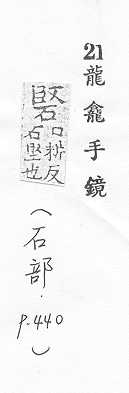 21 龍龕手鏡
硻 口耕反
石堅也
（石部. p.440）